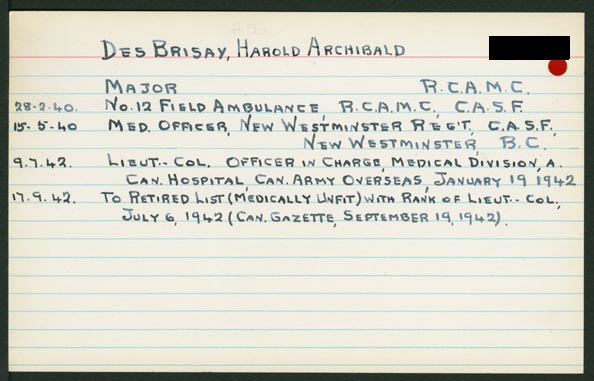 DES BRISAY, HAROLD ARCHIBALD
MAJOR R.C.A.M.C.
28-2-40. NO. 12 FIELD AMBULANCE, R.C.A.M.C., C.A.S.F.
15-5-40 MED. OFFICER, NEW WESTMINSTER REG'T, C.A.S.F.,
NEW WESTMINSTER, B.C.
9.7.42. LIEUT.-COL. OFFICER IN CHARGE, MEDICAL DIVISION, A.
CAN. HOSPITAL, CAN. ARMY OVERSEAS, JANUARY 19 1942
17.9.42. TO RETIRED LIST (MEDICALLY UNFIT) WITH RANK OF LIEUT.-COL.,
JULY 6, 1942 (CAN. GAZETTE, SEPTEMBER 19, 1942).